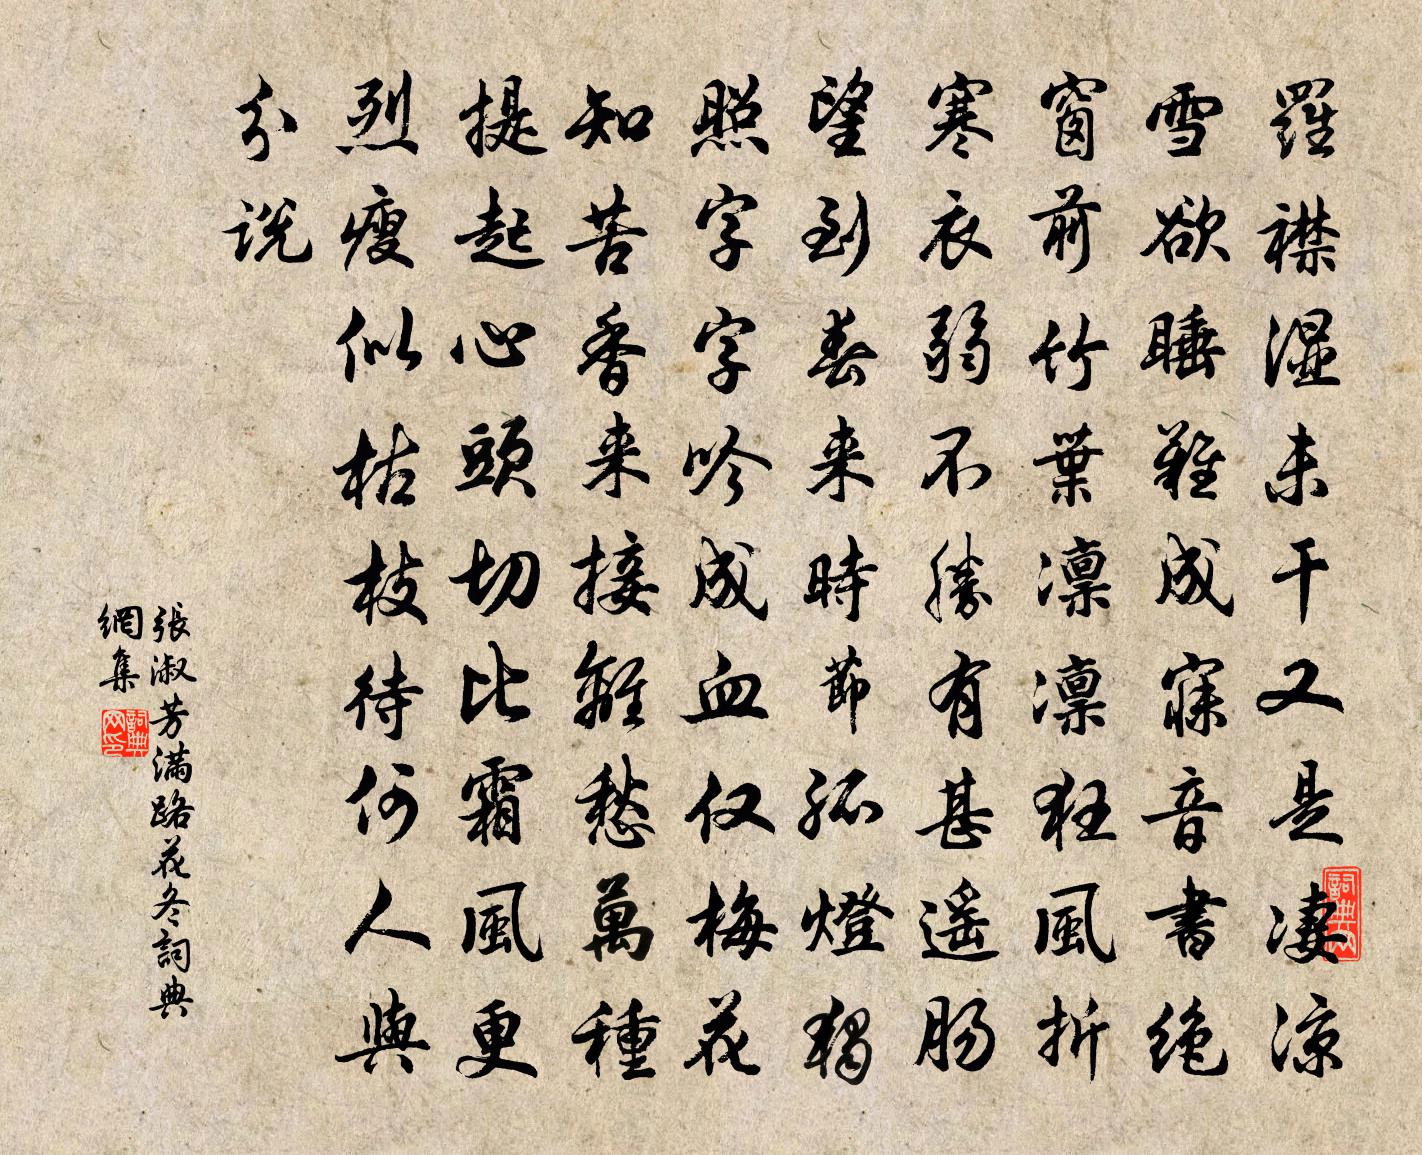 羅襟濕未干又是凄涼
雪欲睡難成寐音書絶
窗前竹葉凛凛狂風折
寒衣弱不勝有甚遥腸
望到春来時節孤燈獨
照字字吟成血仅梅花
知苦香来接離愁萬種
提起心頭切比霜風更
烈瘦似枯枝待何人與
分説
張淑芳滿路花冬詞典
網集
詞典网印
詞典网